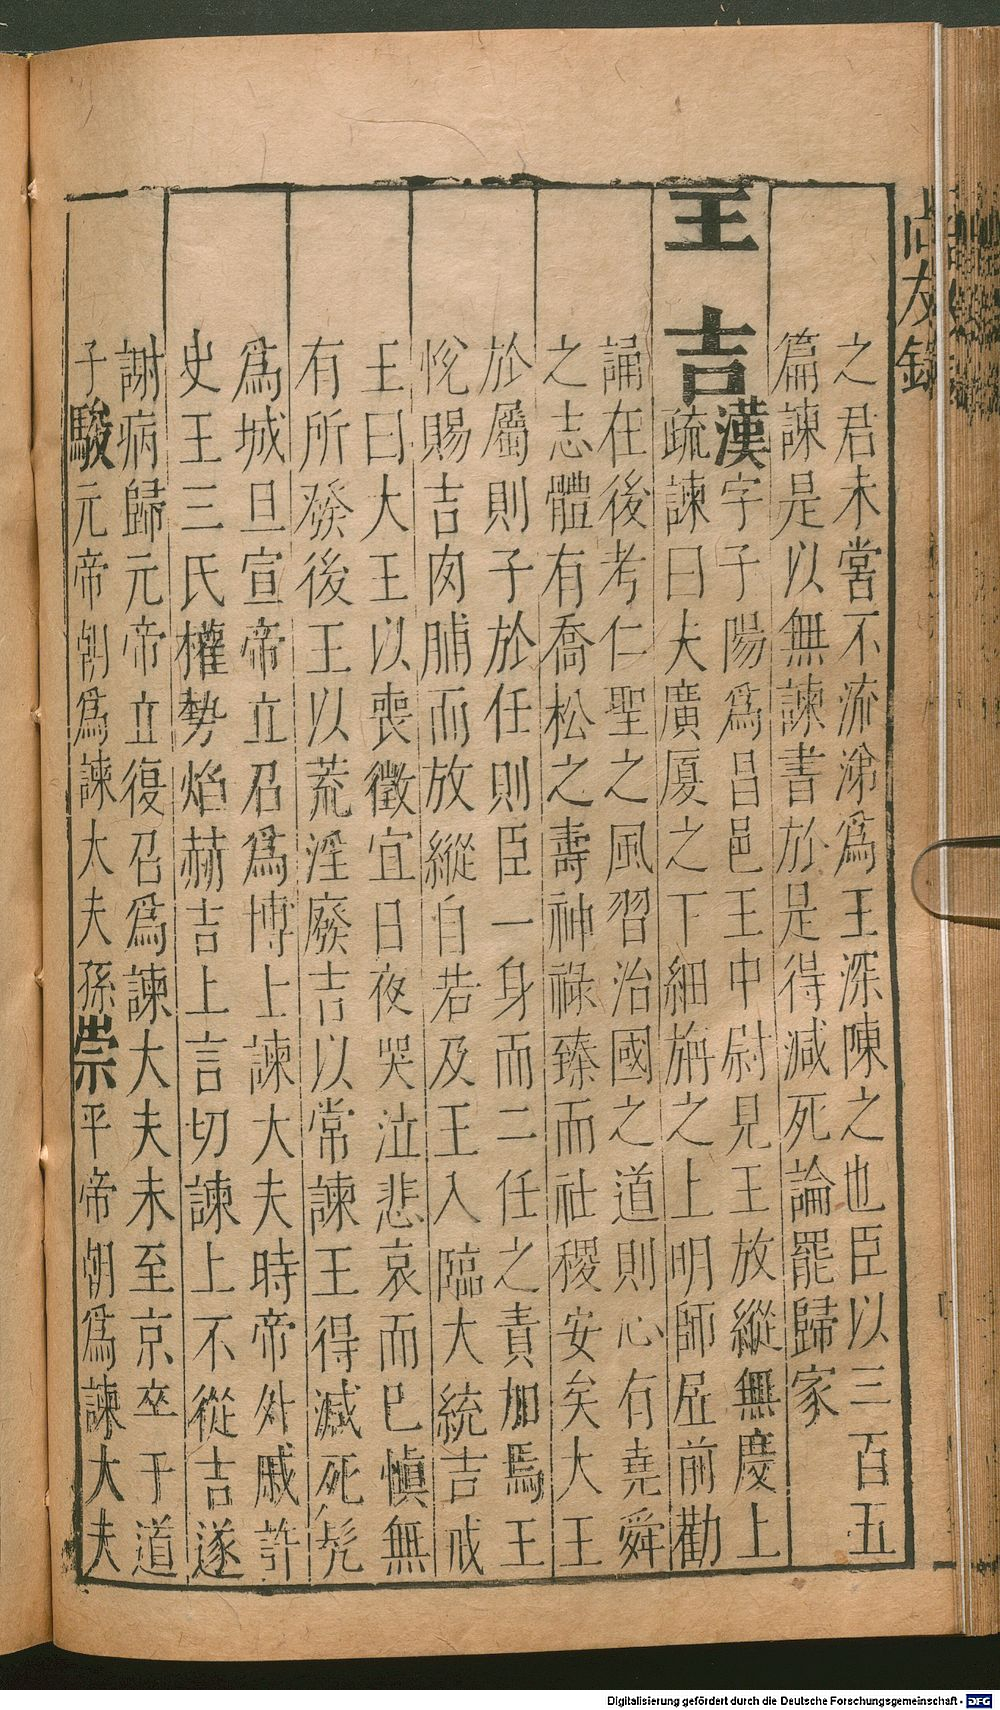 尚友錄
之君未嘗不流涕爲王深陳之也臣以三百五
篇諫是以無諫書於是得減死論罷歸家
王吉
漢字子陽爲昌邑王中尉見王放縱無慶上
疏諫曰夫廣厦之下細旃之上明師居前勸
誦在後考仁聖之風習治國之道則心有堯舜
之志體有喬松之壽神祿臻而社稷安矣大王
於屬則子於任則臣一身而二任之責加焉王
悅賜吉肉脯而放縱自若及王入臨大統吉戒
王曰大王以喪徵宜日夜哭泣悲哀而已慎無
有所發後王以荒淫廢吉以常諫王得減死髡
爲城旦宣帝立召爲博上諫大夫時帝外戚許
史王三氏權勢焰赫吉上言切諫上不從吉遂
謝病歸元帝立復召爲諫大夫未至京卒于道
子駿元帝朝爲諫大夫孫崇平帝朝爲諫大夫
Digitalisierung gefördert durch die Deutsche Forschungsgemeinschaft - DFG